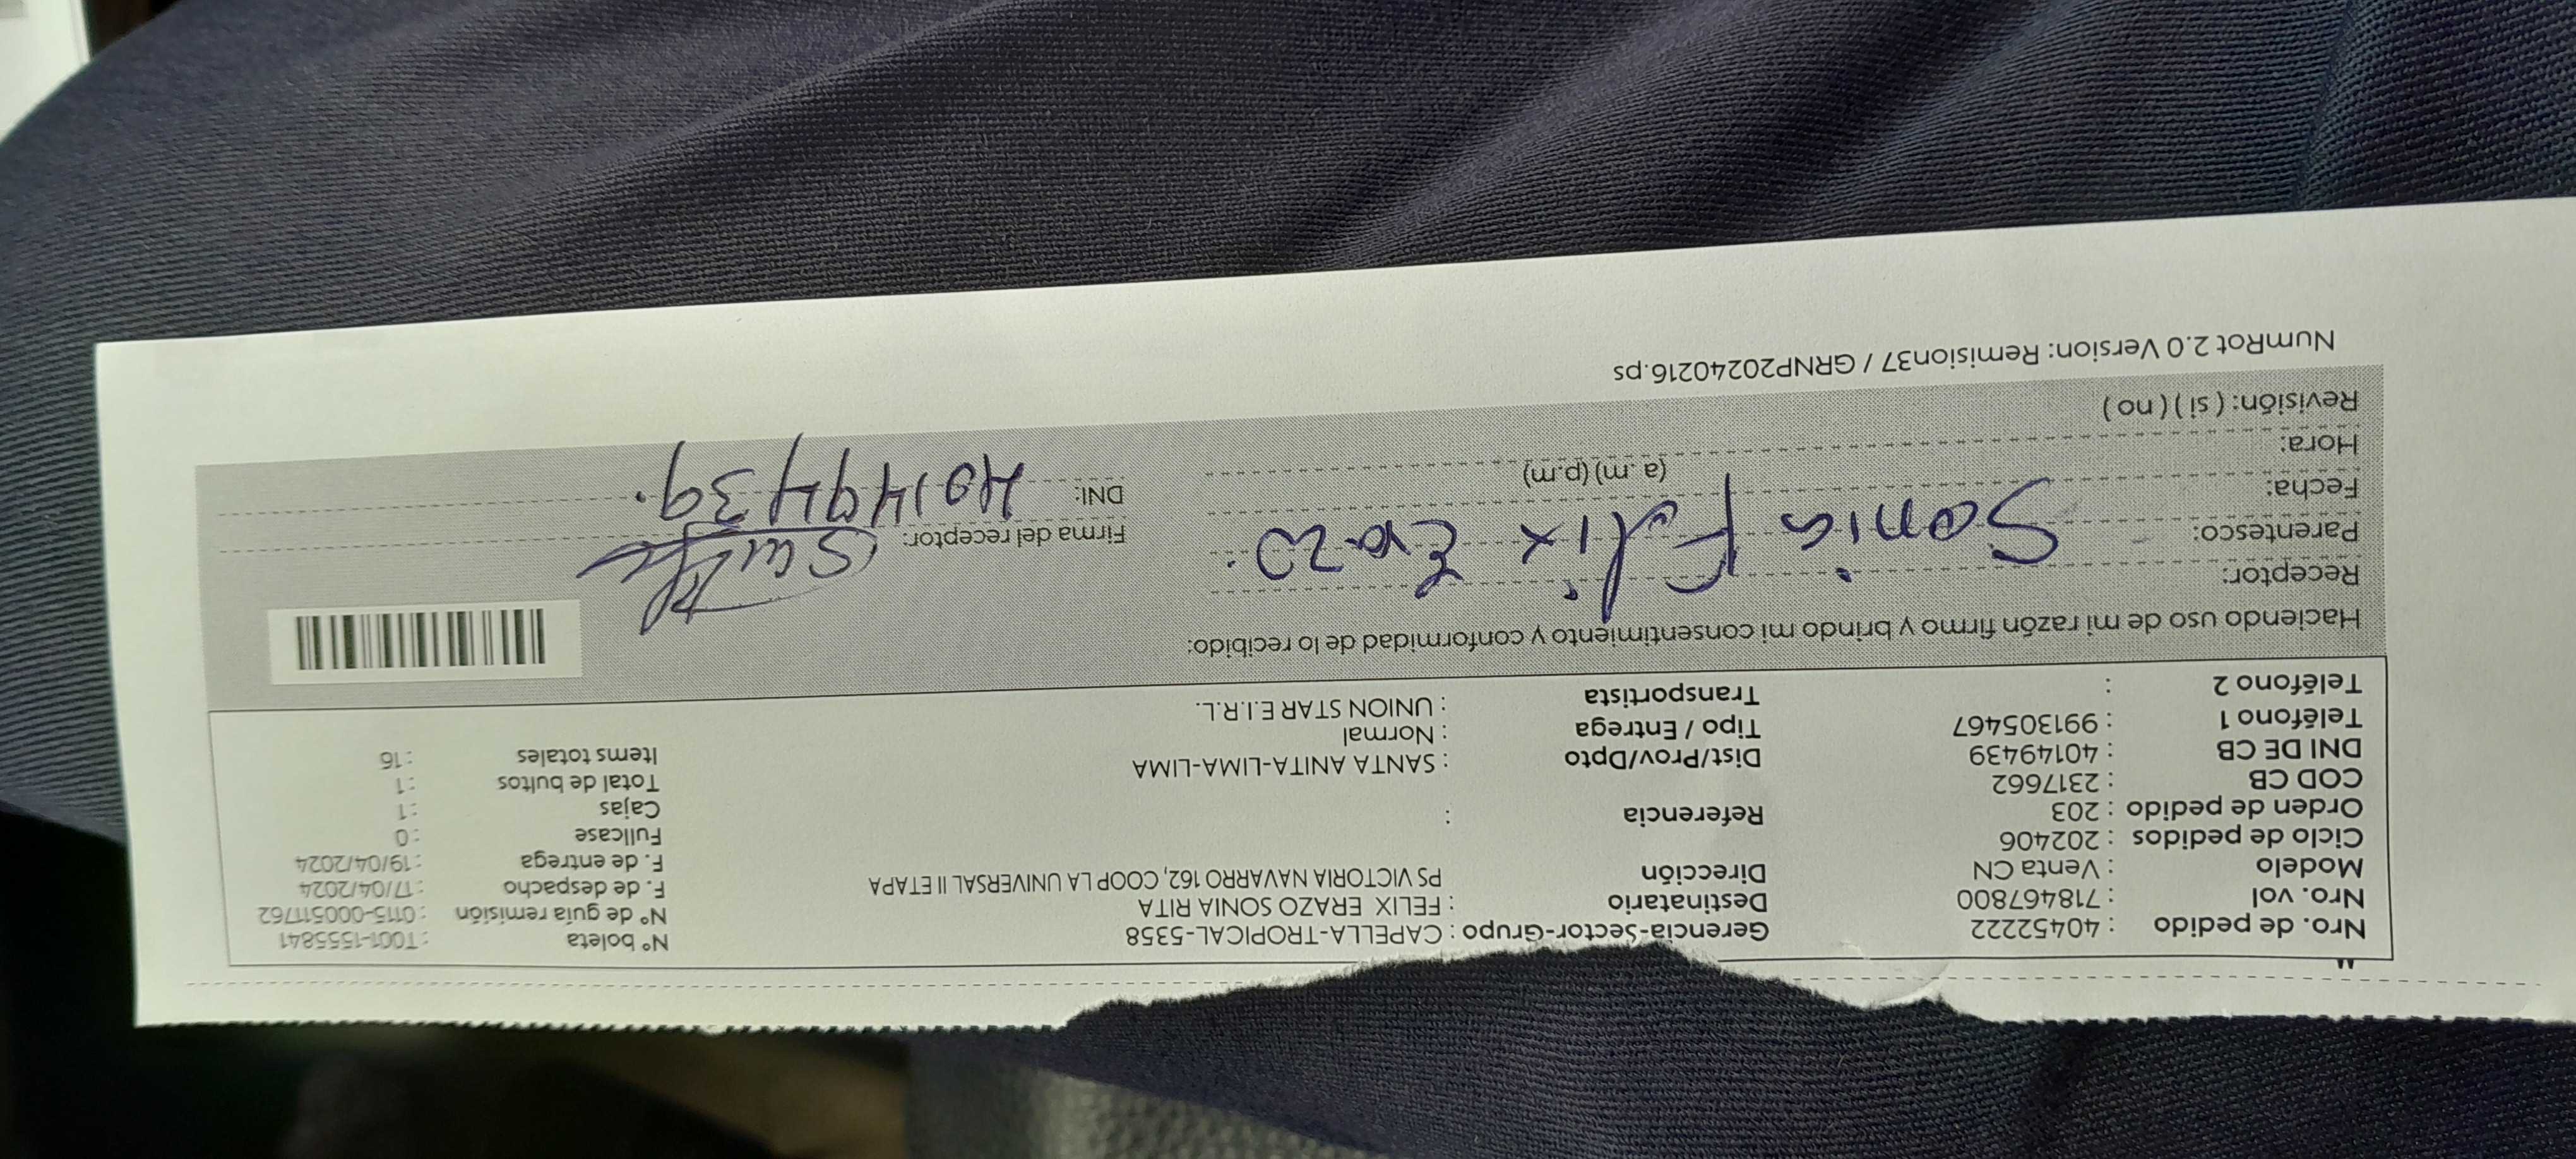 Nro. de pedido : 40452222
Nro. vol : 718467800
Modelo : Venta CN
Ciclo de pedidos : 202406
Orden de pedido : 203
COD CB : 2317662
DNI DE CB : 40149439
Teléfono 1 : 991305467
Teléfono 2 :
Gerencia-Sector-Grupo : CAPELLA-TROPICAL-5358
Destinatario : FELIX ERAZO SONIA RITA
Dirección PS VICTORIA NAVARRO 162, COOP LA UNIVERSAL II ETAPA
Referencia :
Dist/Prov/Dpto : SANTA ANITA-LIMA-LIMA
Tipo / Entrega : Normal
Transportista : UNION STAR E.I.R.L.
N° boleta : T001-1555841
N° de guía remisión : 0115-00051762
F. de despacho : 17/04/2024
F. de entrega : 19/04/2024
Fullcase : 0
Cajas : 1
Total de bultos : 1
Items totales : 16
Haciendo uso de mi razón firmo y brindo mi consentimiento y conformidad de lo recibido:
Receptor:
Parentesco: Sonia Felix Erazo.
Fecha:
Hora: (a .m) (p.m)
Revisión: ( si ) ( no )
Firma del receptor:
DNI: 40149439.
NumRot 2.0 Version: Remision37 / GRNP20240216.ps